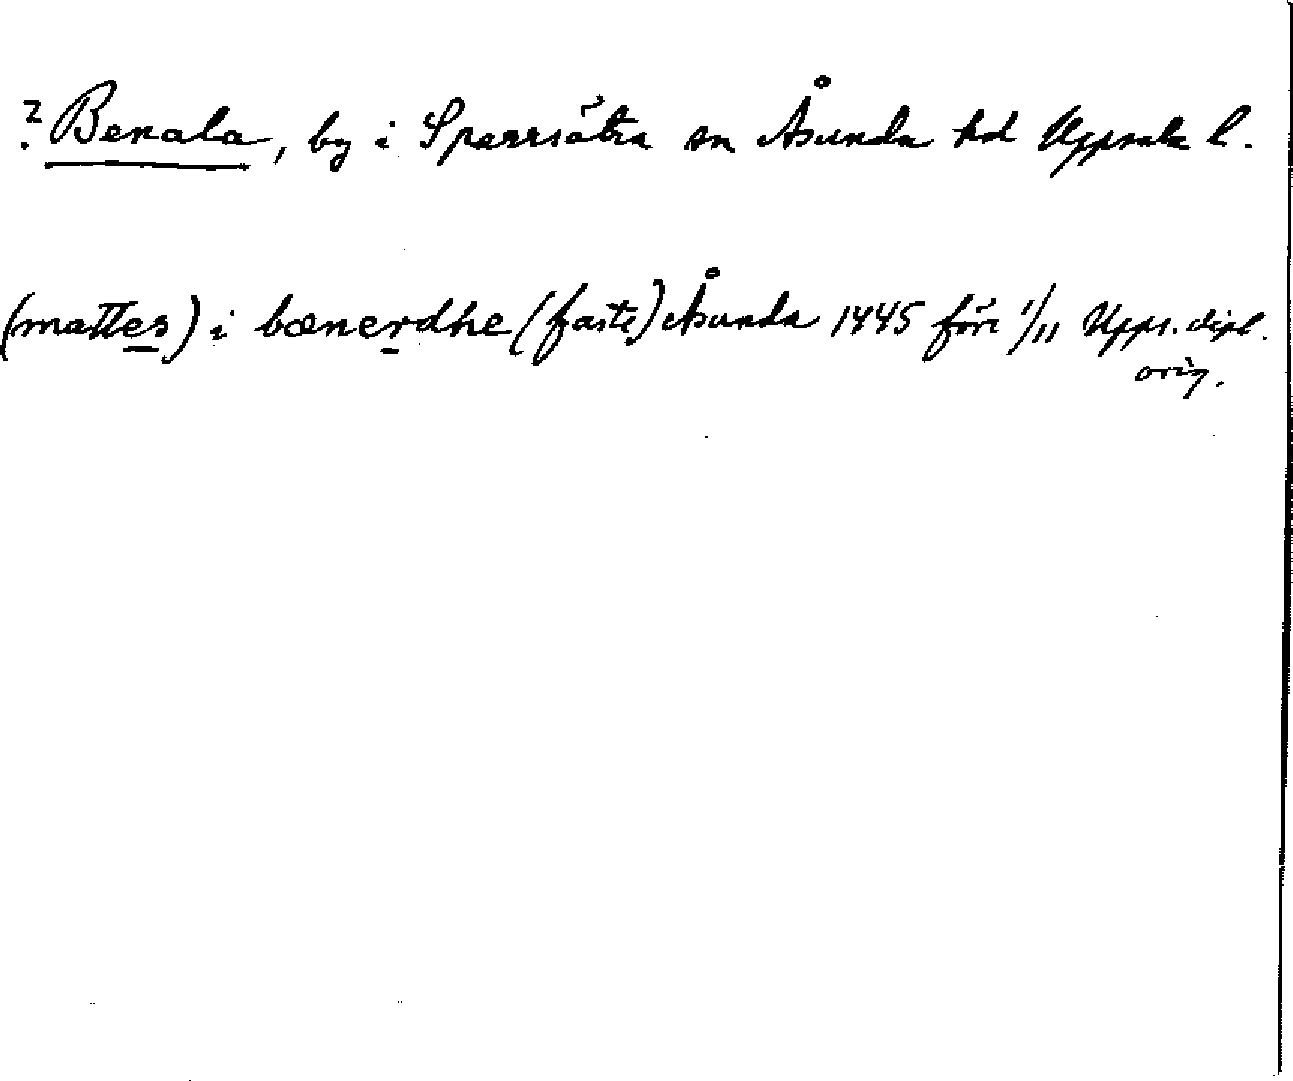 ? Benala, by i Sparrsätra sn Åsunda hd Uppsala l.
(mattes) i bænerdhe (faste) Åsunda 1445 före 1/11 Upps. dipl.
orig.